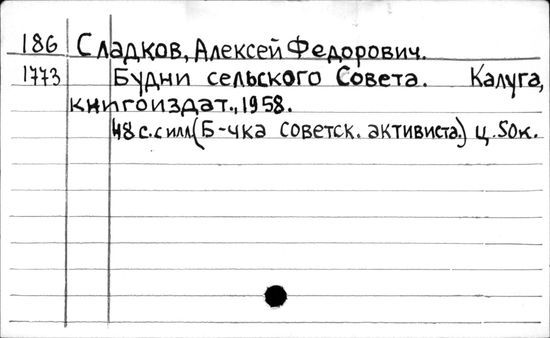 186 Сладков, Алексей Федорович.
1773 Будни сельского Совета. Калуга,
книгоиздат., 1958.
48 с. с илл. (Б-чка советск. активиста.) ц. 50к.